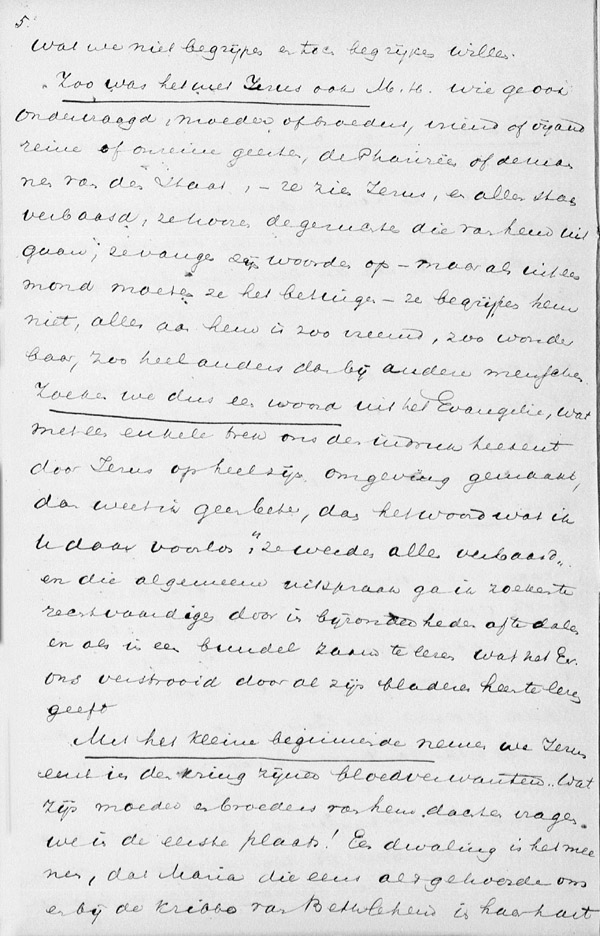 5.
wat we niet begrijpen en toch begrijpen willen.
Zoo was het met Jezus ook M. H. wie ge ooit
ondervraagd, moeder of broeders, vriend of vijand
reine of onreine geesten, de Phariseën of de man
nen van den Staat, – ze zien Jezus, en allen staan
verbaasd, ze hooren de geruchten die van hem uit
gaan, ze vangen zijn woorden op – maar als uit een
mond moeten ze het betuigen – ze begrijpen hem
niet, alles aan hem is zoo vreemd, zoo wonder
baar, zoo heel anders dan bij andere menschen.
Zoeken we dus een woord uit het Evangelie, wat
met een enkelen trek ons den indruk teekent
door Jezus op heel zijn omgeving gemaakt,
dan weet ik geen beter, dan het woord wat ik
U daar voorlas, "ze werden allen verbaasd"
en die algemeene uitspraak ga ik zoeken te
rechtvaardigen door in bijzonderheden af te dalen
en als in een bundel zaam te lezen wat het Ev.
ons verstrooid door al zijn bladeren heen te lezen
geeft
Met het kleine beginnende nemen we Jezus
eerst in den kring zijner bloedverwanten. Wat
zijn moeder en broeders van hem dachten vragen
we in de eerste plaats! Een dwaling is het mee
nen, dat Maria die eens als gehoorde ons
en bij de kribbe van Bethlehem in haar hart